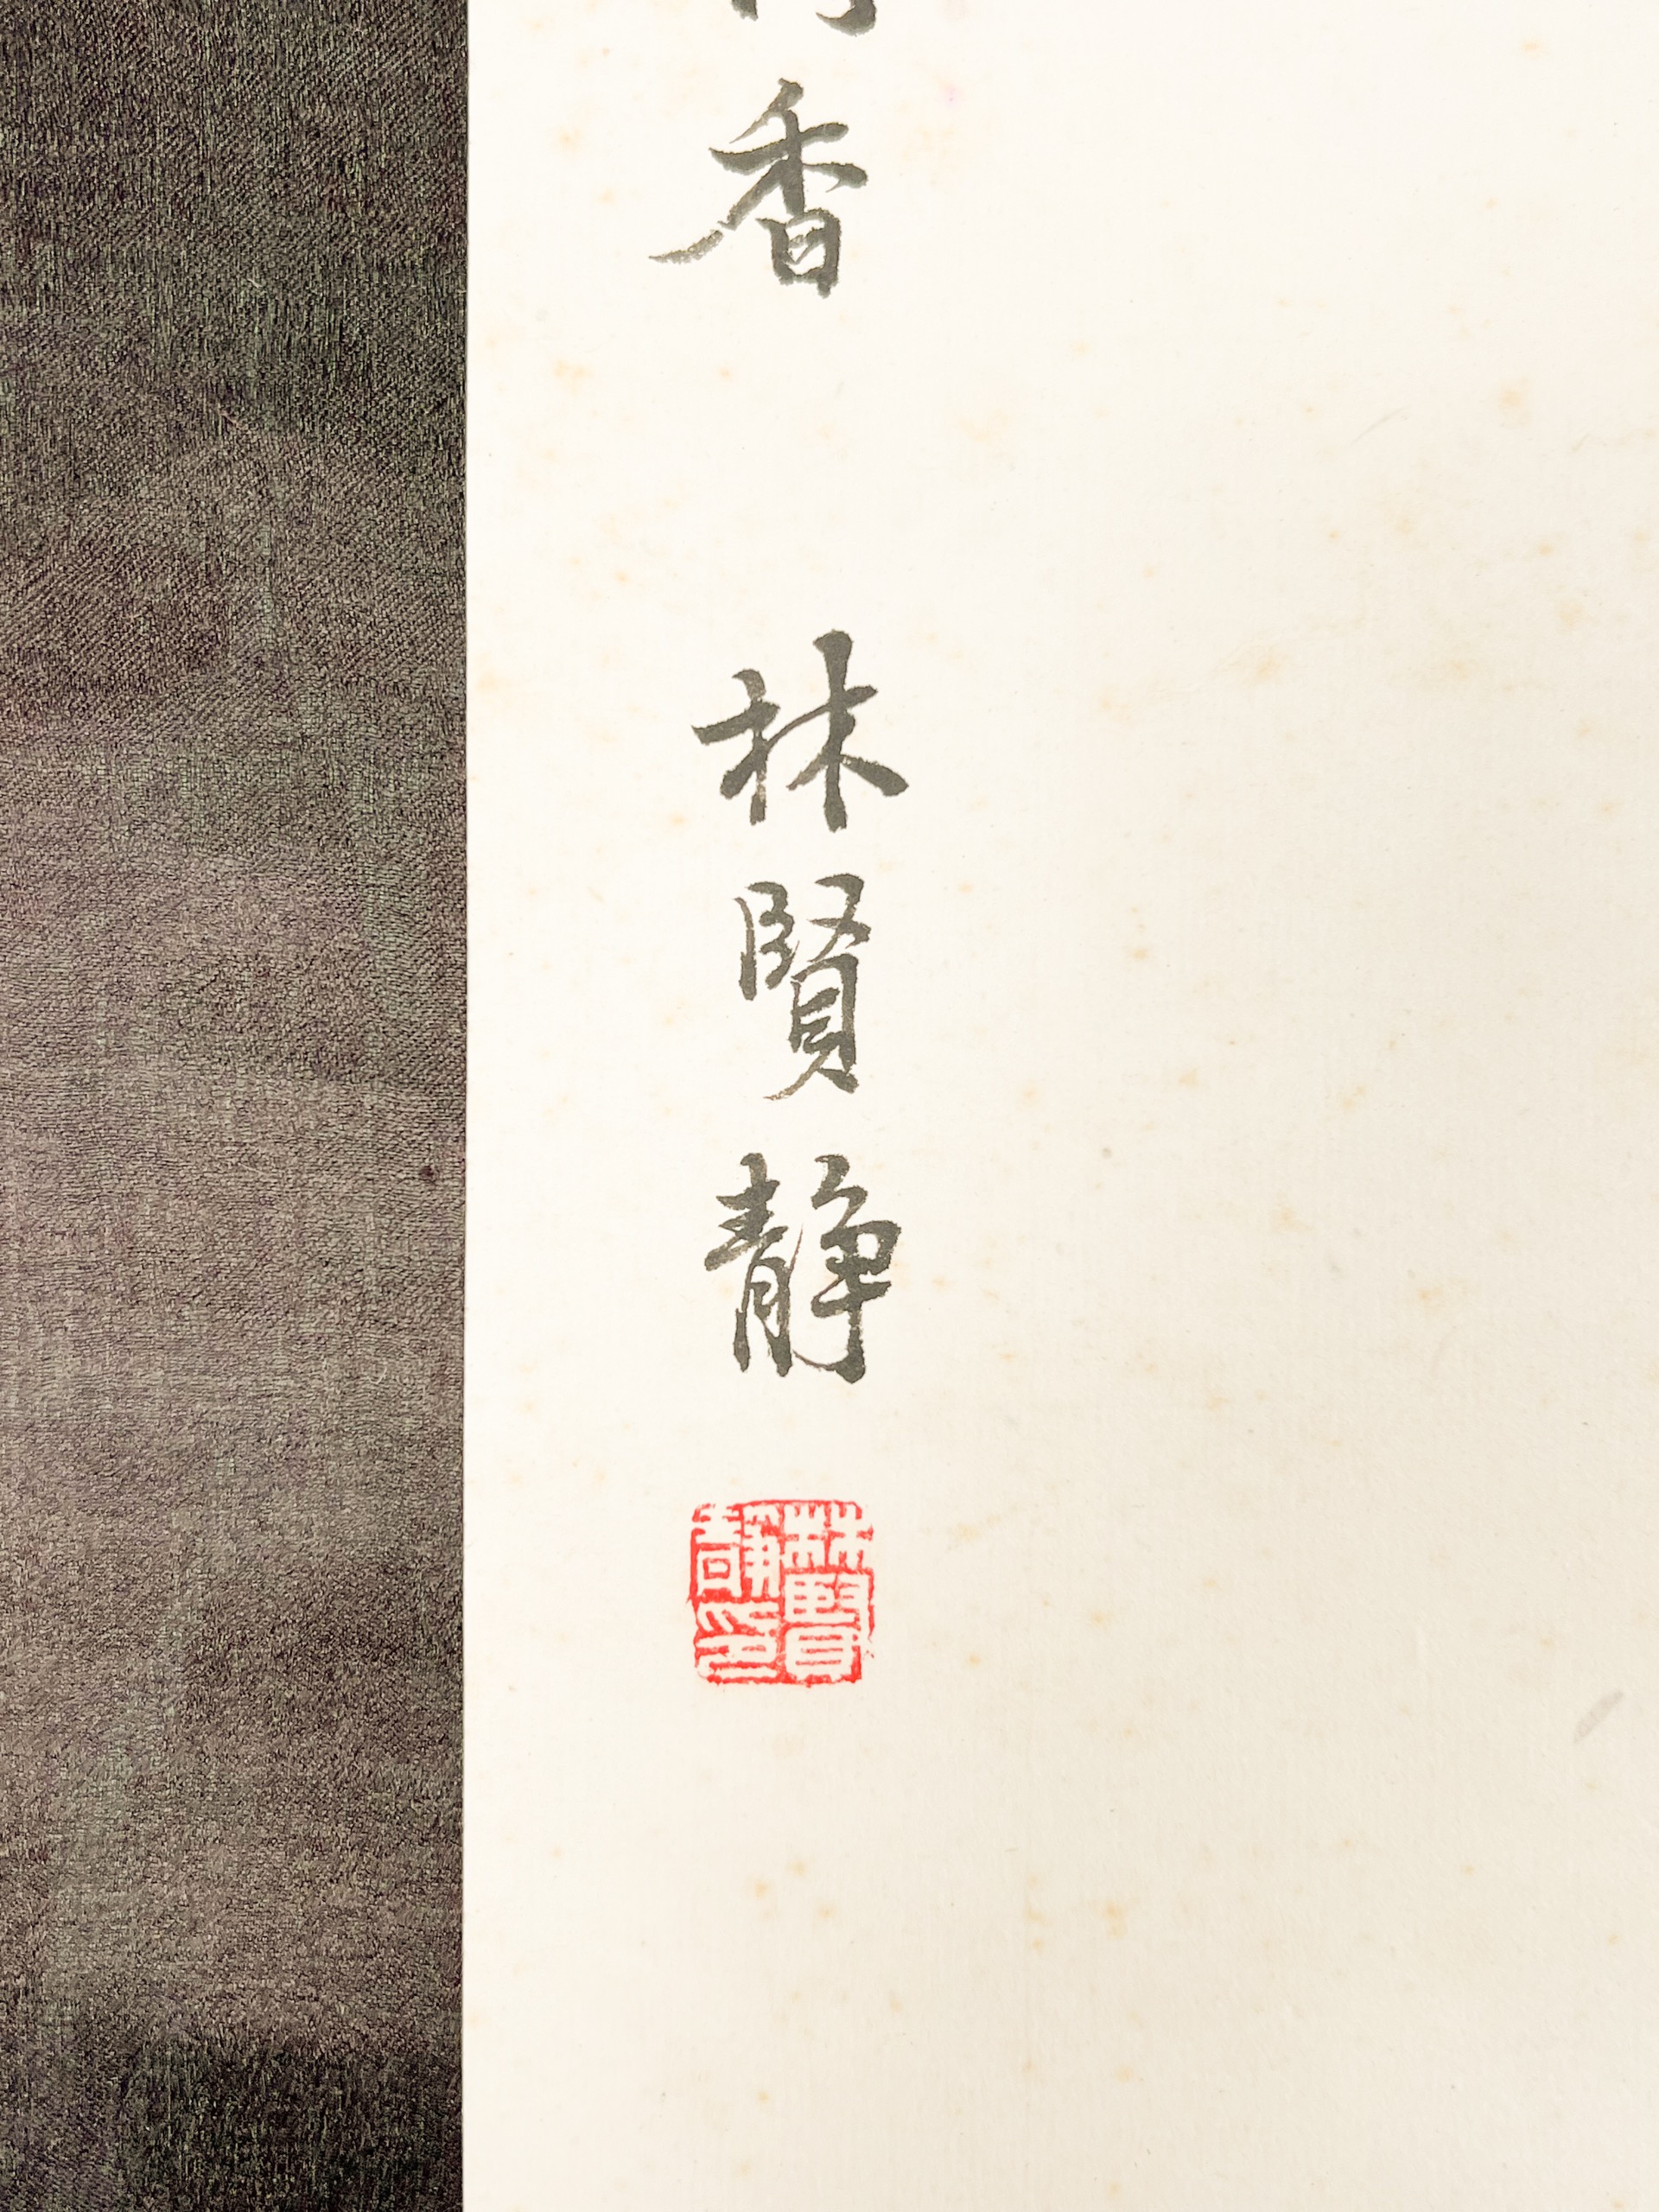 香
林賢靜
林賢
靜印